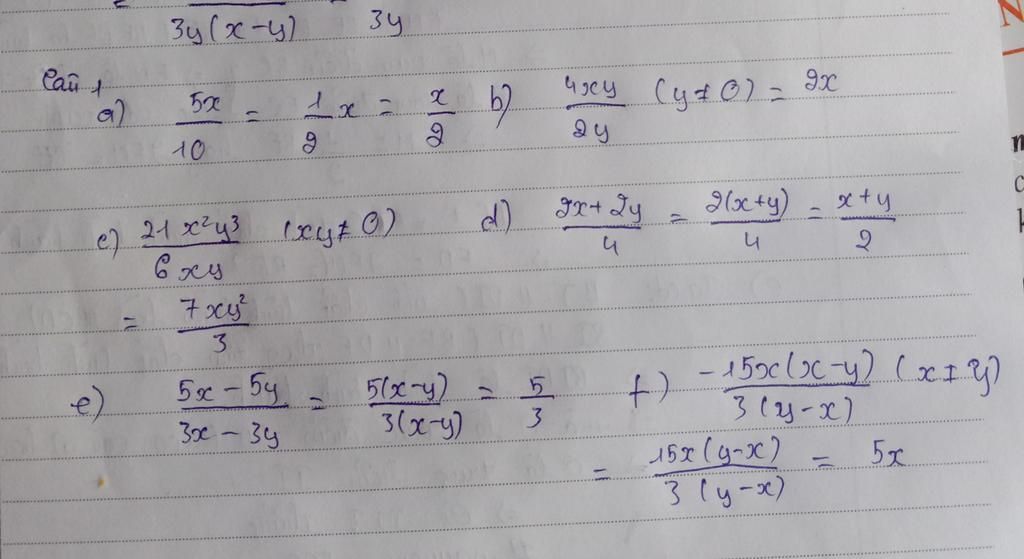 = 3y(x-y) 3y
Bài 1
a) 5x/10 = 1/2 x = x/2 b) 4xy/2y (y ≠ 0) = 2x
c) 21x²y³/6xy (xy ≠ 0) d) 2x+2y/4 = 2(x+y)/4 = x+y/2
= 7xy²/3
e) 5x-5y/3x-3y = 5(x-y)/3(x-y) = 5/3 f) -15x(x-y)/3(y-x) (x ≠ y)
= 15x(y-x)/3(y-x) = 5x